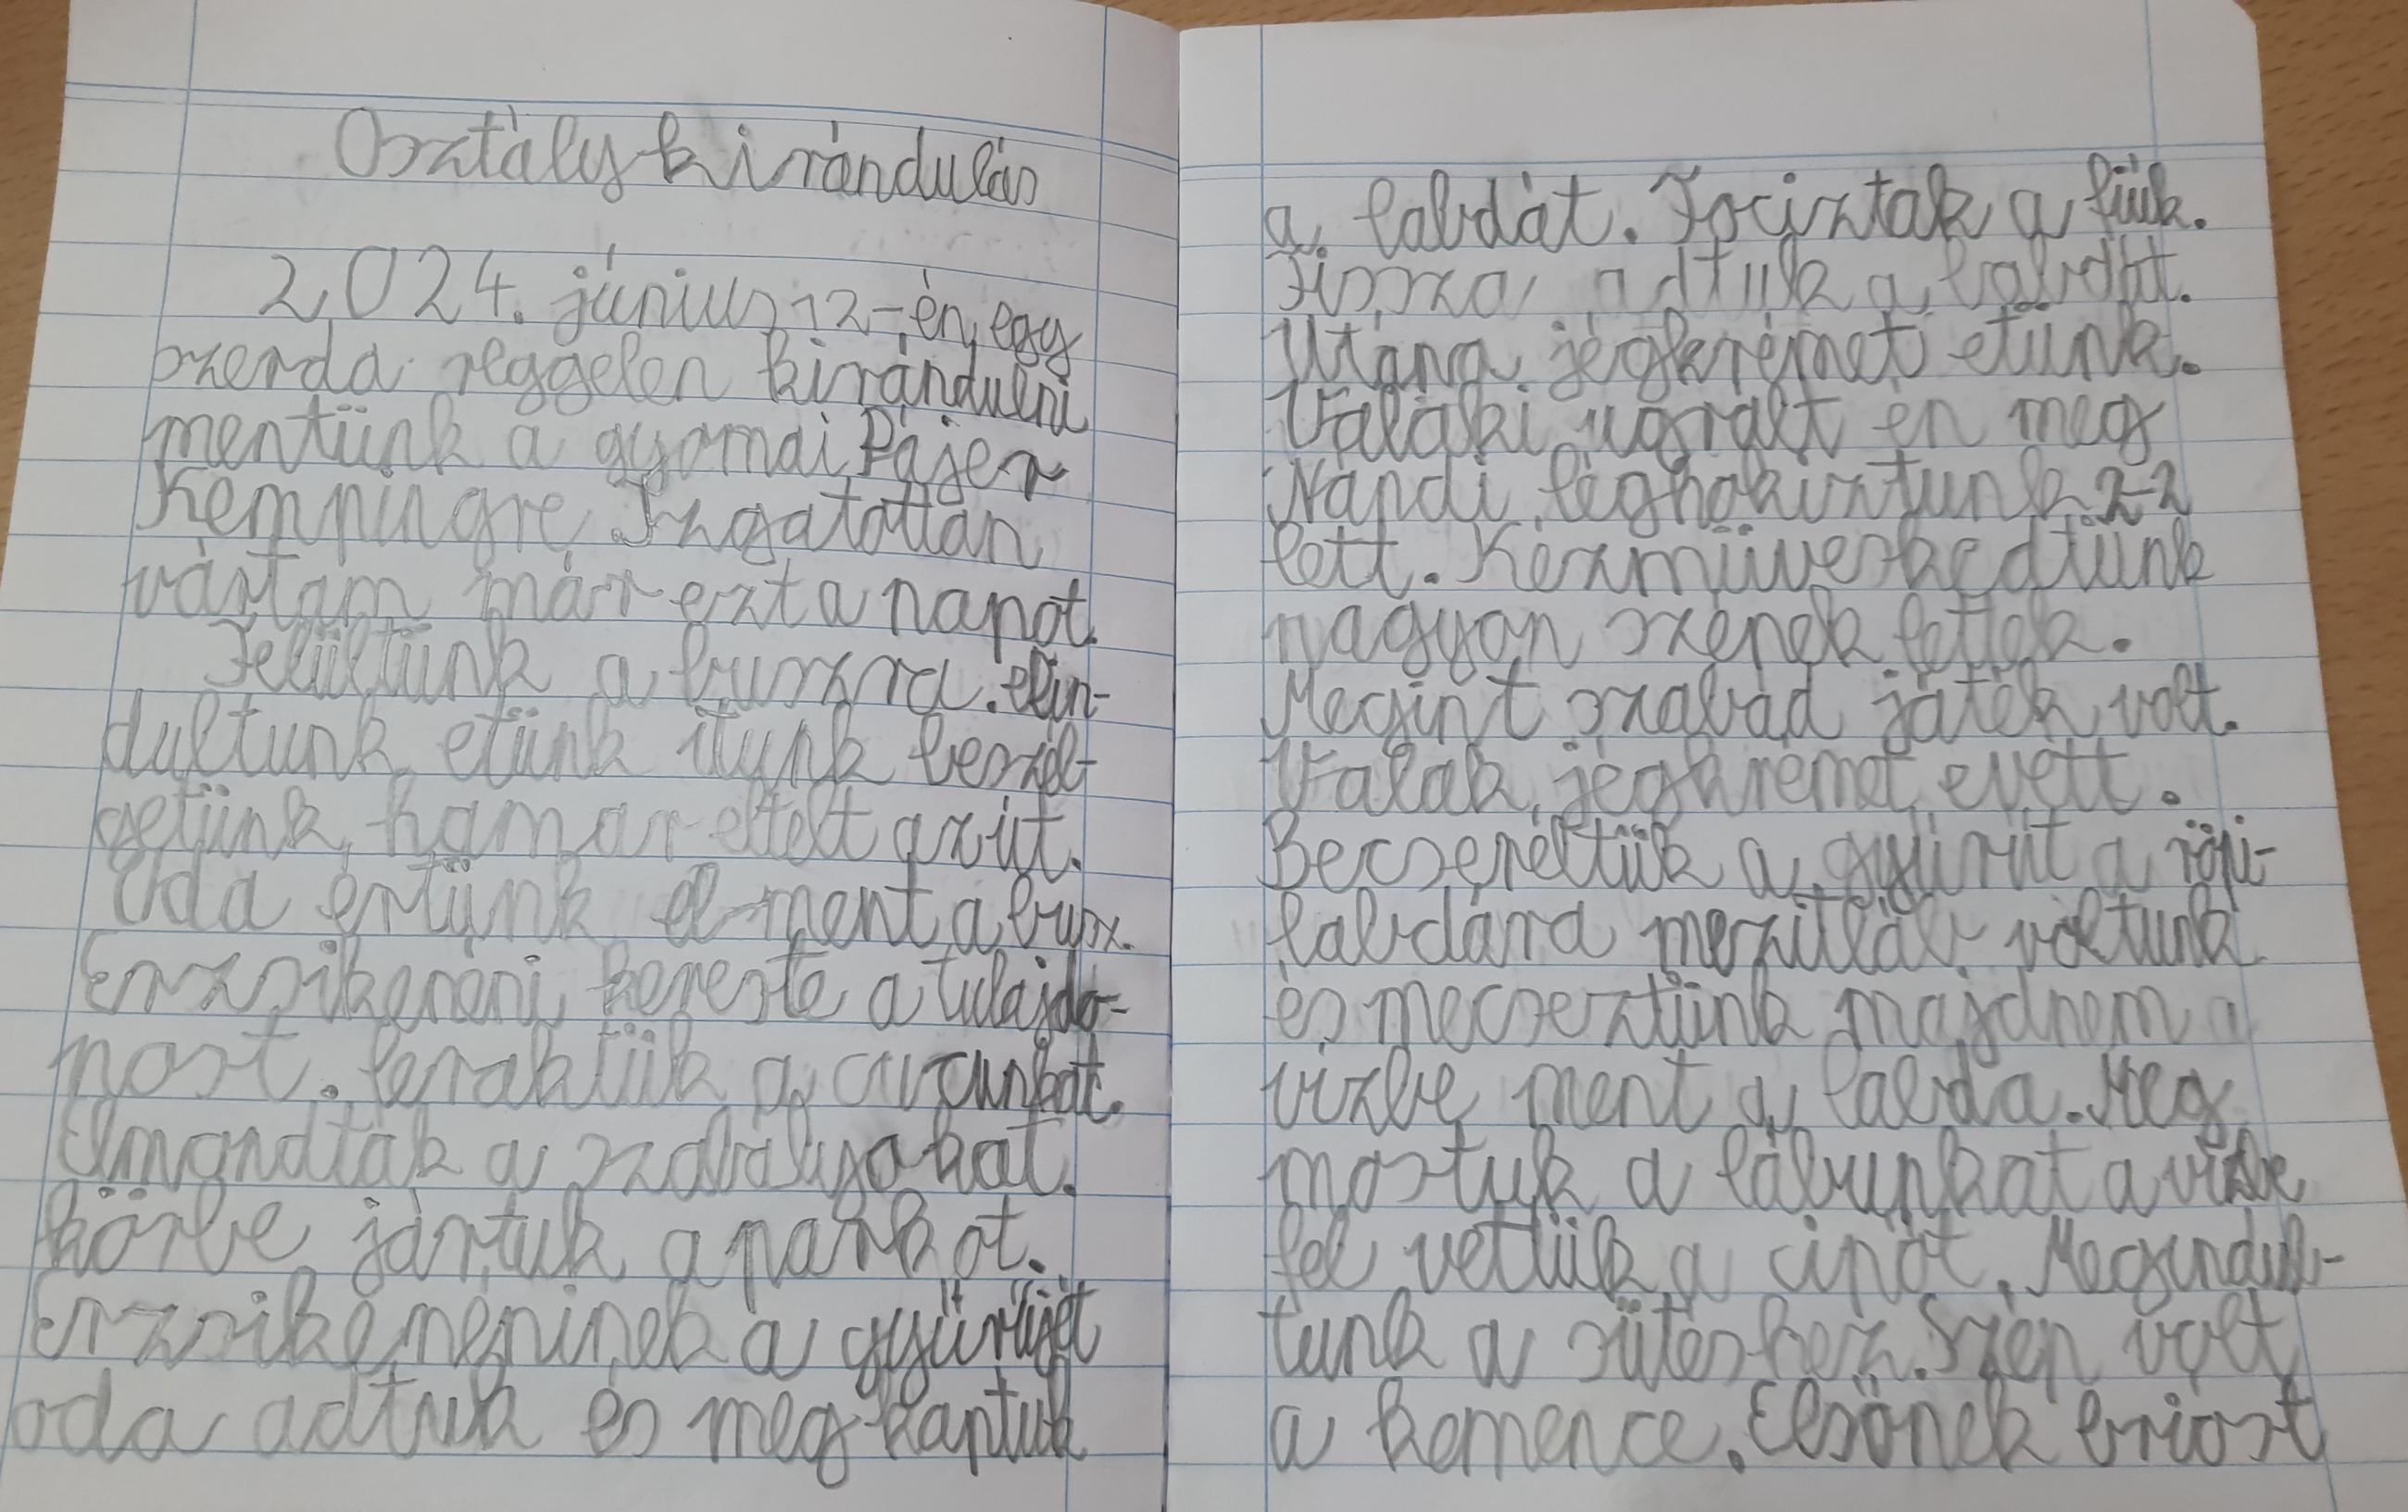 Osztály kirándulás
2024. június 12-én egy
szerda reggelen kirándulni
mentünk a gyomai Pájer
Kempingre. Izgatottan
vártam már ezt a napot.
Felültünk a buszra. elin-
dultunk etünk itunk beszél-
getünk, hamar eltelt az út.
Oda értünk el ment a busz.
Erzsikenéni kereste a tulajdo-
nost. leraktük a cuccunkat.
Elmondták a szabályokat.
körbe jártuk a parkot.
Erzsike néninek a gyűrűjét
oda adtuk és meg-kaptuk
a labdát. Fociztak a fiúk.
Vissza adtuk a labdát.
Utána jégkrémet etünk.
Valaki ugrált én meg
Nándi léghokiztunk 2-2
lett. Kézműveskedtünk
nagyon szépek lettek.
Megint szabad játék volt.
Valak jégkrémet evett.
Becseréltük a gyűrűt a röpi-
labdára mezitláb voltunk
és mecseztünk majdnem a
vízbe ment a labda. Meg
mostuk a lábunkat a vízbe
fel vettük a cipőt. Megindul-
tunk a sütéshez. Szép volt
a kemence. Elsőnek briost